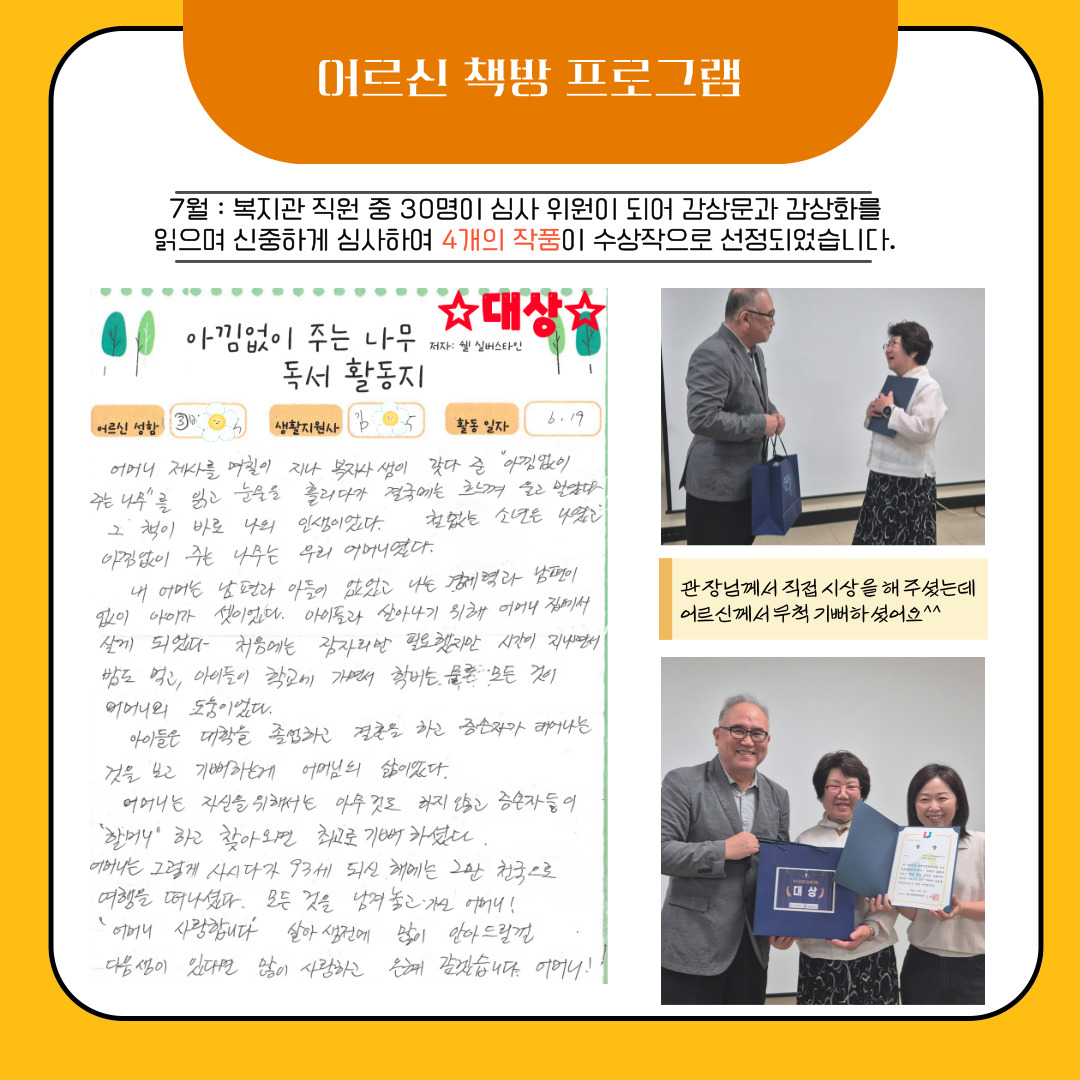 어르신 책방 프로그램
7월 : 복지관 직원 중 30명이 심사 위원이 되어 감상문과 감상화를
읽으며 신중하게 심사하여 4개의 작품이 수상작으로 선정되었습니다.
☆대상☆
아낌없이 주는 나무
저자: 쉘 실버스타인
독서 활동지
어르신 성함
생활지원사 김
활동 일자 6.19
어머니 제사를 며칠이 지나 복지사 샘이 갖다 준 "아낌없이
주는 나무"를 읽고 눈물을 흘리다가 결국에는 흐느껴 울고 말았다
그 책이 바로 나의 인생이었다. 철없는 소년은 나였고
아낌없이 주는 나무는 우리 어머니였다.
내 어머는 남편과 아들이 없었고 나는 경제력과 남편이
없이 아이가 셋이었다. 아이들과 살아나기 위해 어머니 집에서
살게 되었다 처음에는 잠자리만 필요했지만 시간이 지나면서
밥도 먹고, 아이들이 학교에 가면서 학비는 물론 모든 것이
어머니의 도움이었다.
아이들은 대학을 졸업하고 결혼을 하고 증손자가 태어나는
것을 보고 기뻐하는게 어머님의 삶이었다.
어머니는 자신을 위해서는 아무것도 하지 않고 증손자들이
"할머니" 하고 찾아오면 최고로 기뻐하셨다.
어머니는 그렇게 사시다가 93세 되신 해에는 그만 천국으로
여행을 떠나셨다. 모든 것을 남겨 놓고 가신 어머니!
"어머니 사랑합니다" 살아생전에 많이 안아드릴걸
다음생이 있다면 많이 사랑하고 은혜 갚겠습니다. 어머니!
관장님께서 직접 시상을 해 주셨는데
어르신께서 무척 기뻐하셨어요^^
대상
상장